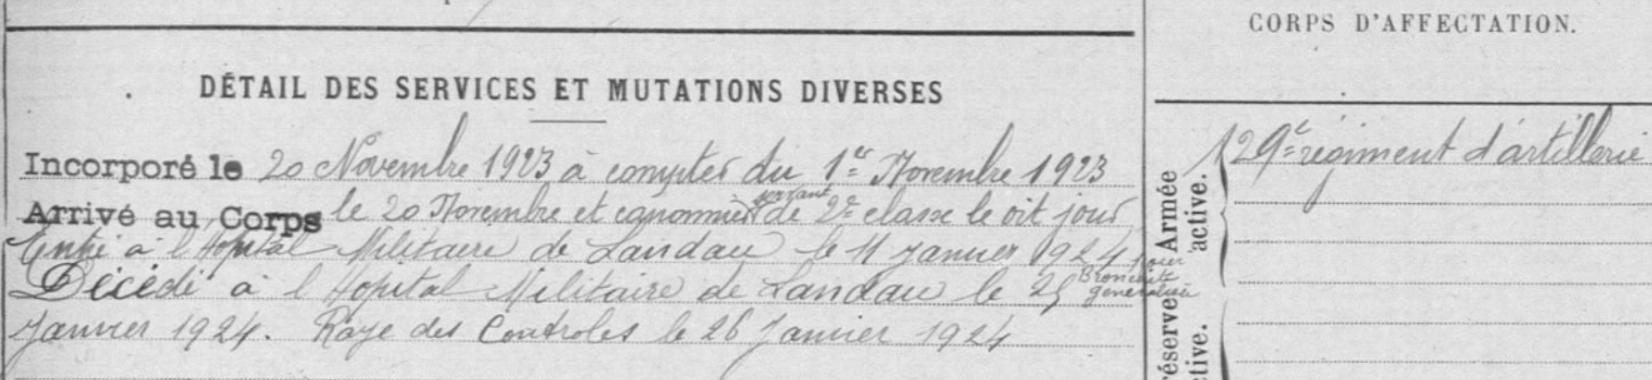 DÉTAIL DES SERVICES ET MUTATIONS DIVERSES
Incorporé le 20 Novembre 1923 à compter du 1er Novembre 1923
Arrivé au Corps le 20 Novembre et canonnier servant de 2e classe le dit jour
Entré à l'Hopital Militaire de Landau le 11 Janvier 1924 pour
Bronchite
généralisée
Décédé à l Hopital Militaire de Landau le 25
Janvier 1924. Raye des Controles le 26 Janvier 1924
CORPS D'AFFECTATION.
Armée
active.
129e régiment d'artillerie
réserve
ctive.